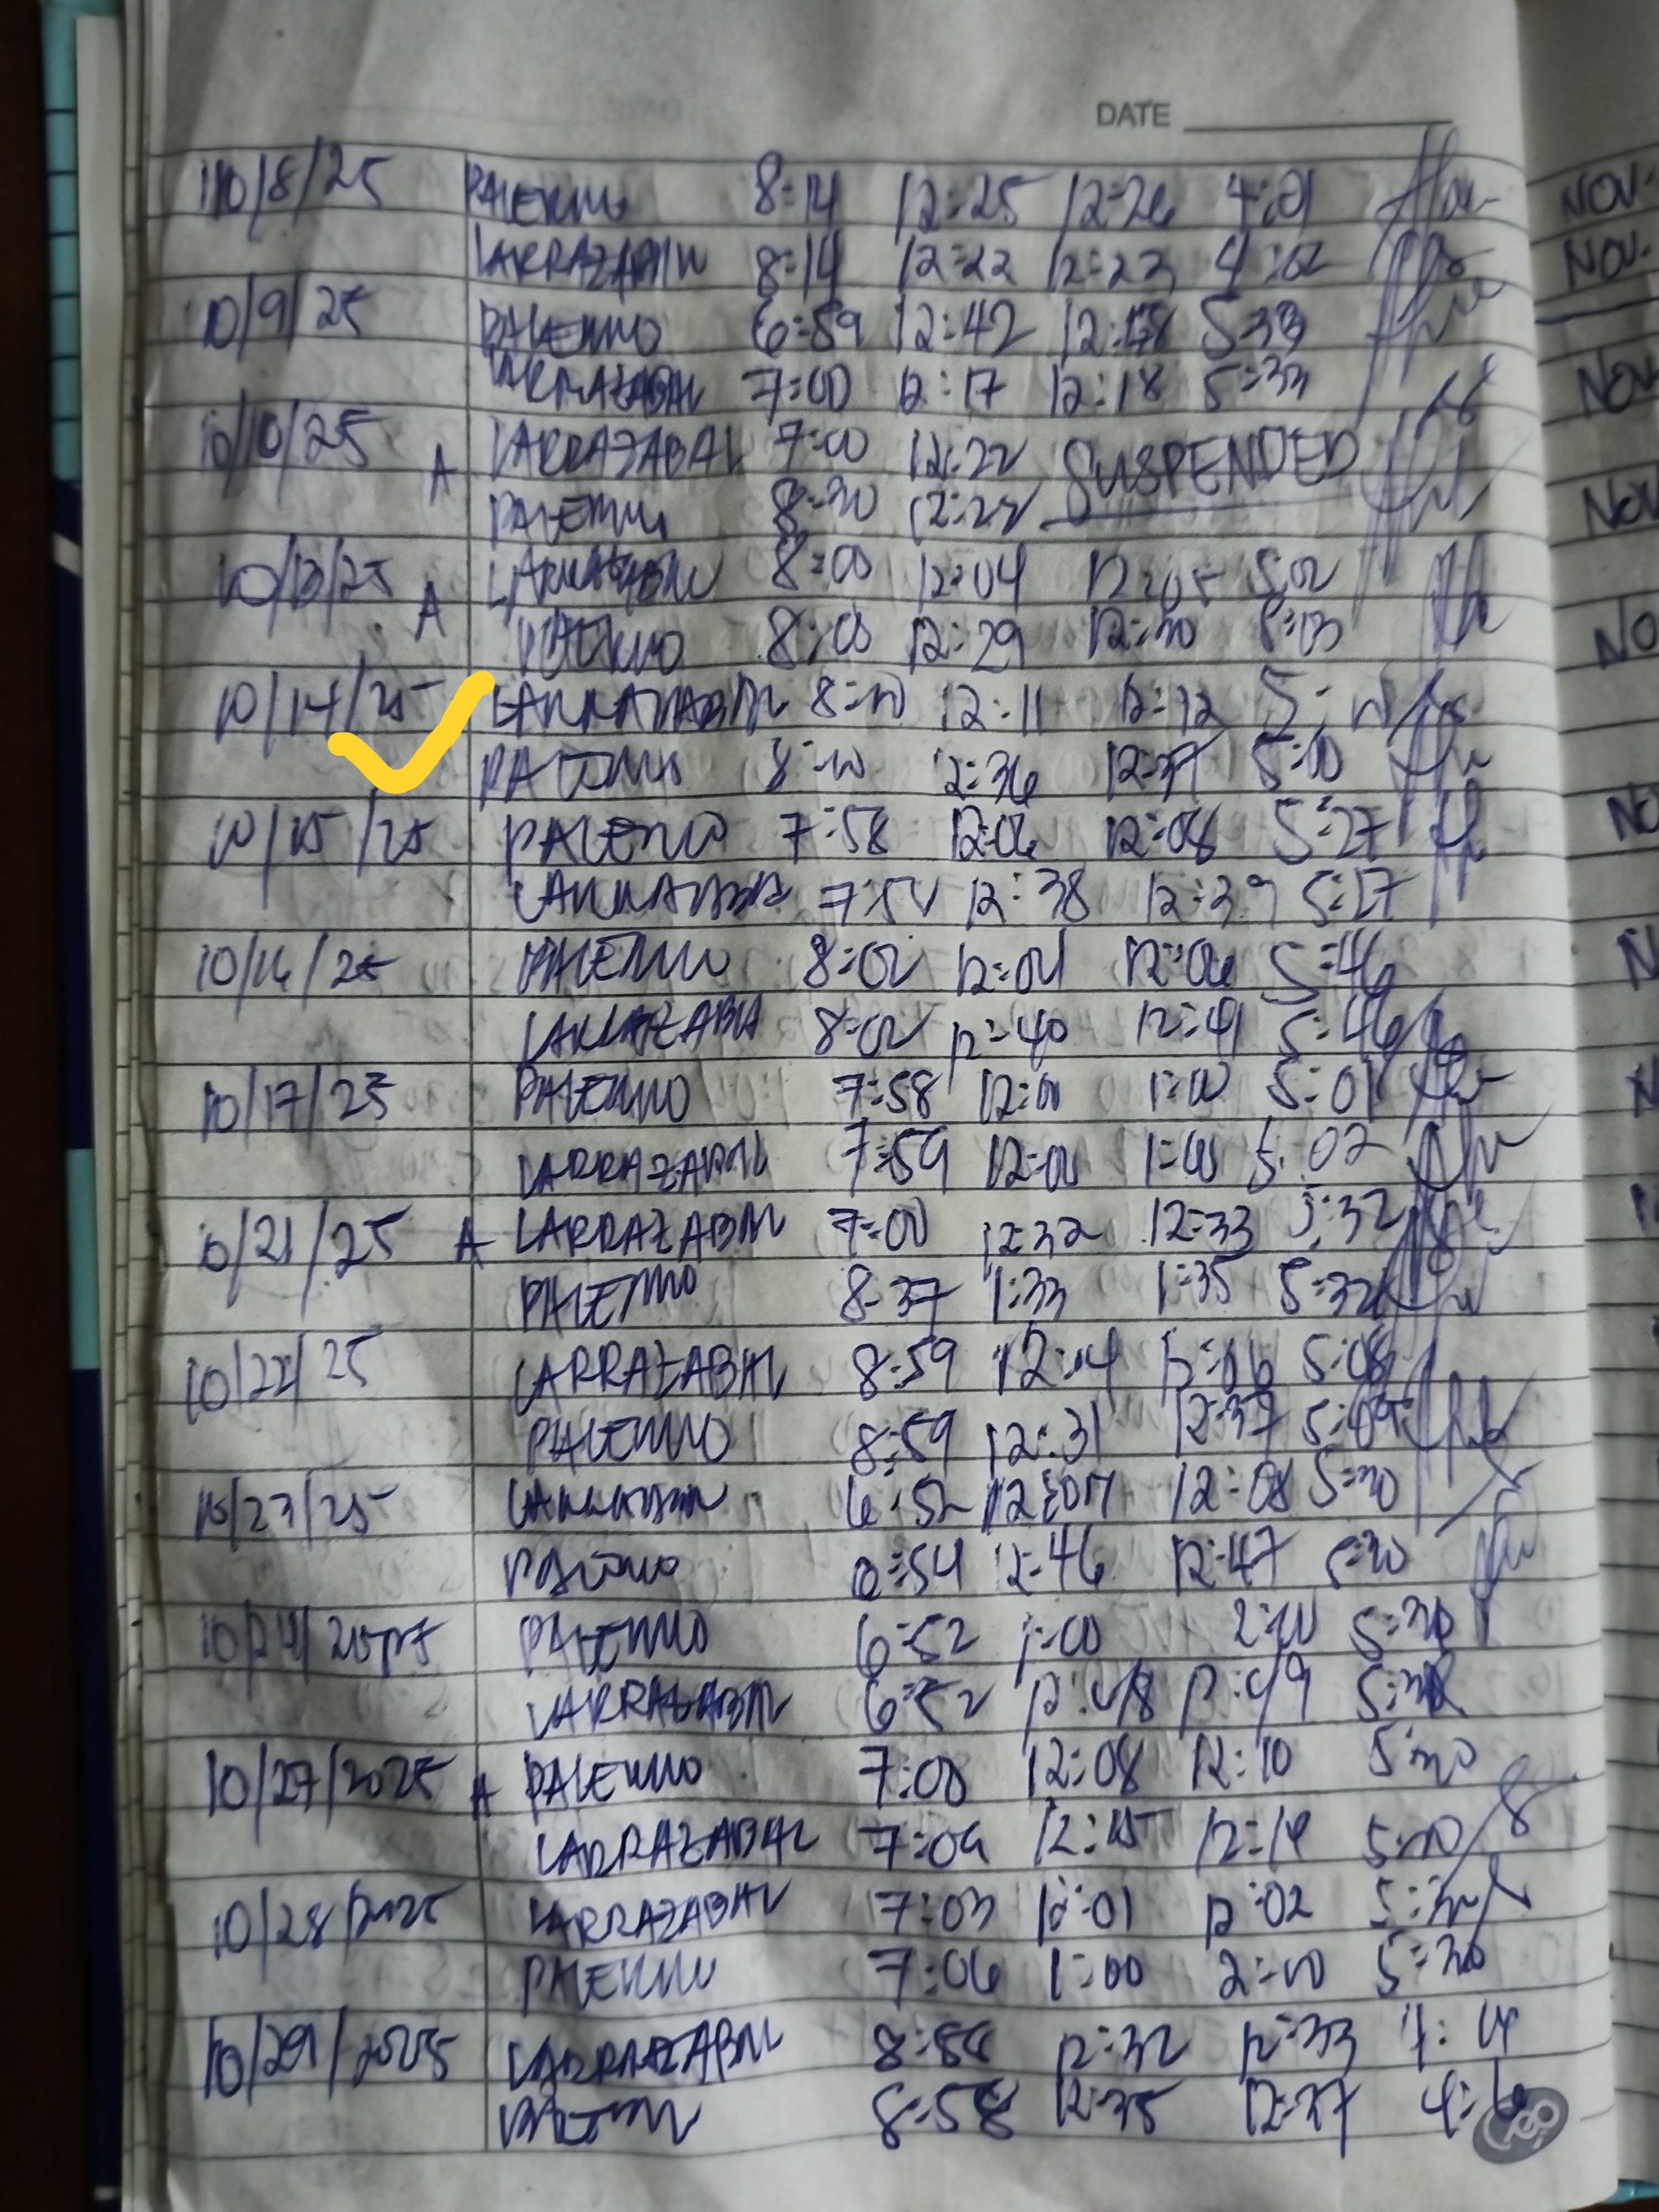 DATE
10/8/25 PALERMO 8:14 12:25 12:26 4:01
LARRAZABAL 8:14 12:22 12:23 4:02
10/9/25 PALERMO 6:59 12:42 12:48 5:33
LARRAZABAL 7:00 12:17 12:18 5:33
10/10/25 A LARRAZABAL 7:00 12:22 SUSPENDED
PALERMO 8:30 12:22
10/13/25 A LARRAZABAL 8:00 12:04 12:05 5:02
PALERMO 8:00 12:29 12:30 5:03
10/14/25 LARRAZABAL 8:00 12:11 12:12 5:00
PALERMO 8:00 12:36 12:37 5:00
10/15/25 PALERMO 7:58 12:06 12:08 5:27
LARRAZABAL 12:38 12:39 5:27
10/16/25 PALERMO 8:02 12:04 12:06 5:46
LARRAZABAL 8:02 12:40 12:41 5:46
10/17/25 PALERMO 7:58 12:00 1:00 5:01
LARRAZABAL 7:59 12:00 1:00 5:02
10/21/25 A LARRAZABAL 7:00 12:32 12:33 5:32
PALERMO 8:37 1:33 1:35 5:32
10/22/25 LARRAZABAL 8:59 12:04 12:06 5:08
PALERMO 8:59 12:31 12:37
10/23/25 LARRAZABAL 6:52 12:07 12:08 5:30
PALERMO 6:54 12:46 12:47 5:30
PALERMO 6:52 1:00 2:00 5:30
LARRAZABAL 6:52 12:48 12:49
10/27/2025 A PALERMO 7:00 12:08 12:10 5:30
LARRAZABAL 7:09 12:15
10/28/2025 LARRAZABAL 7:03 12:01 12:02 5:30
PALERMO 7:06 1:00 2:00 5:30
10/29/2025 LARRAZABAL 12:32 12:33
PALERMO 8:58 12:35 12:37
NOV.
NOV.
NOV
NOV
NO
NO
N
N